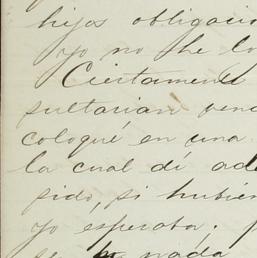 hijos obligacio
yo no he lo
Ciertament
sultarian ven
coloqué en una
la cual dí ade
sido, si hubie
yo esperaba;
se nada